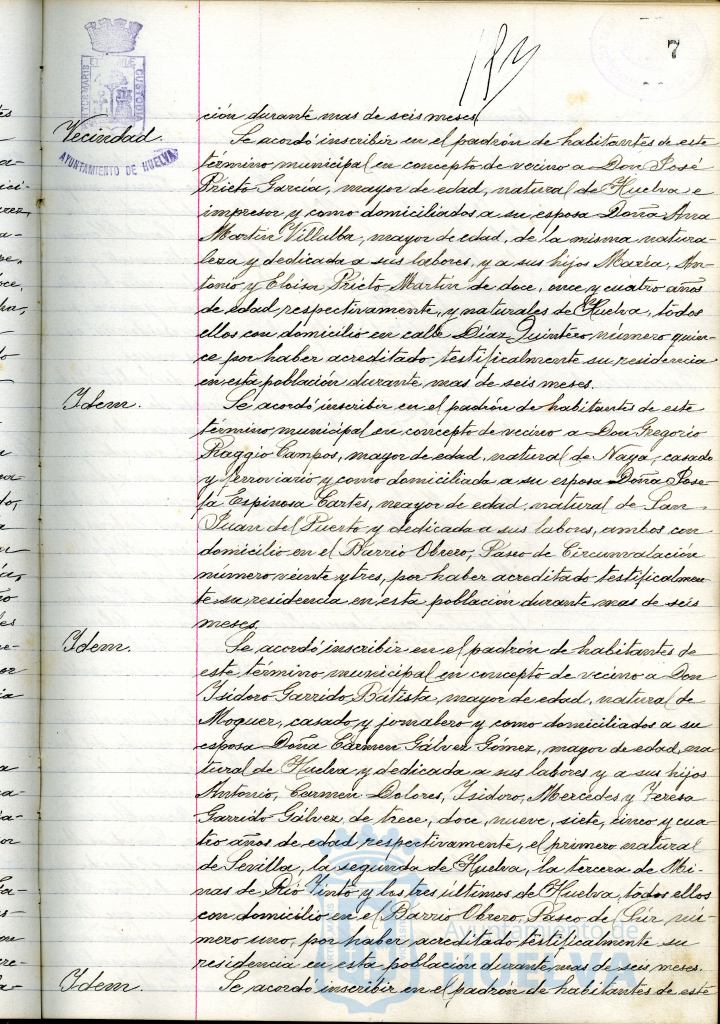 7
ción durante mas de seis meses
Vecindad.
AYUNTAMIENTO DE HUELVA
Se acordó inscribir en el padrón de habitantes de este
término municipal en concepto de vecino a Don José
Prieto Garcia, mayor de edad, natural de Huelva e
impresor y como domiciliados a su esposa Doña Ana
Martin Villalba, mayor de edad, de la misma natura-
leza y dedicada a sus labores, y a sus hijos Maria, An-
tonio y Eloisa Prieto Martin de doce, once y cuatro años
de edad respectivamente, y naturales de Huelva, todos
ellos con domicilio en calle Diaz Quintero, número quin-
ce por haber acreditado testificalmente su residencia
en esta población durante mas de seis meses.
Idem.
Se acordó inscribir en el padrón de habitantes de este
término municipal en concepto de vecino a Don Gregorio
Raggio Campos, mayor de edad, natural de Naya, casado
y ferroviario y como domiciliada a su esposa Doña Jose-
fa Espinosa Cartes, mayor de edad, natural de San
Juan del Puerto y dedicada a sus labores, ambos con
domicilio en el Barrio Obrero, Paseo de Circunvalacion
número veinte y tres, por haber acreditado testificalmen-
te su residencia en esta población durante mas de seis
meses.
Idem.
Se acordó inscribir en el padrón de habitantes de
este término municipal en concepto de vecino a Don
Isidoro Garrido Batista, mayor de edad, natural de
Moguer, casado y jornalero y como domiciliados a su
esposa Doña Carmen Gálvez Gómez, mayor de edad, na-
tural de Huelva y dedicada a sus labores y a sus hijos
Antonio, Carmen Dolores, Isidoro, Mercedes y Teresa
Garrido Gálvez de trece, doce, nueve, siete, cinco y cua-
tro años de edad respectivamente, el primero natural
de Sevilla, la segunda de Huelva, la tercera de Mi-
nas de Rio Tinto y los tres últimos de Huelva, todos ellos
con domicilio en el Barrio Obrero, Paseo del Sur nú-
mero uno, por haber acreditado testificalmente su
residencia en esta población durante mas de seis meses.
Idem.
Se acordo inscribir en el padrón de habitantes de este
Ayuntamiento de
HUELVA